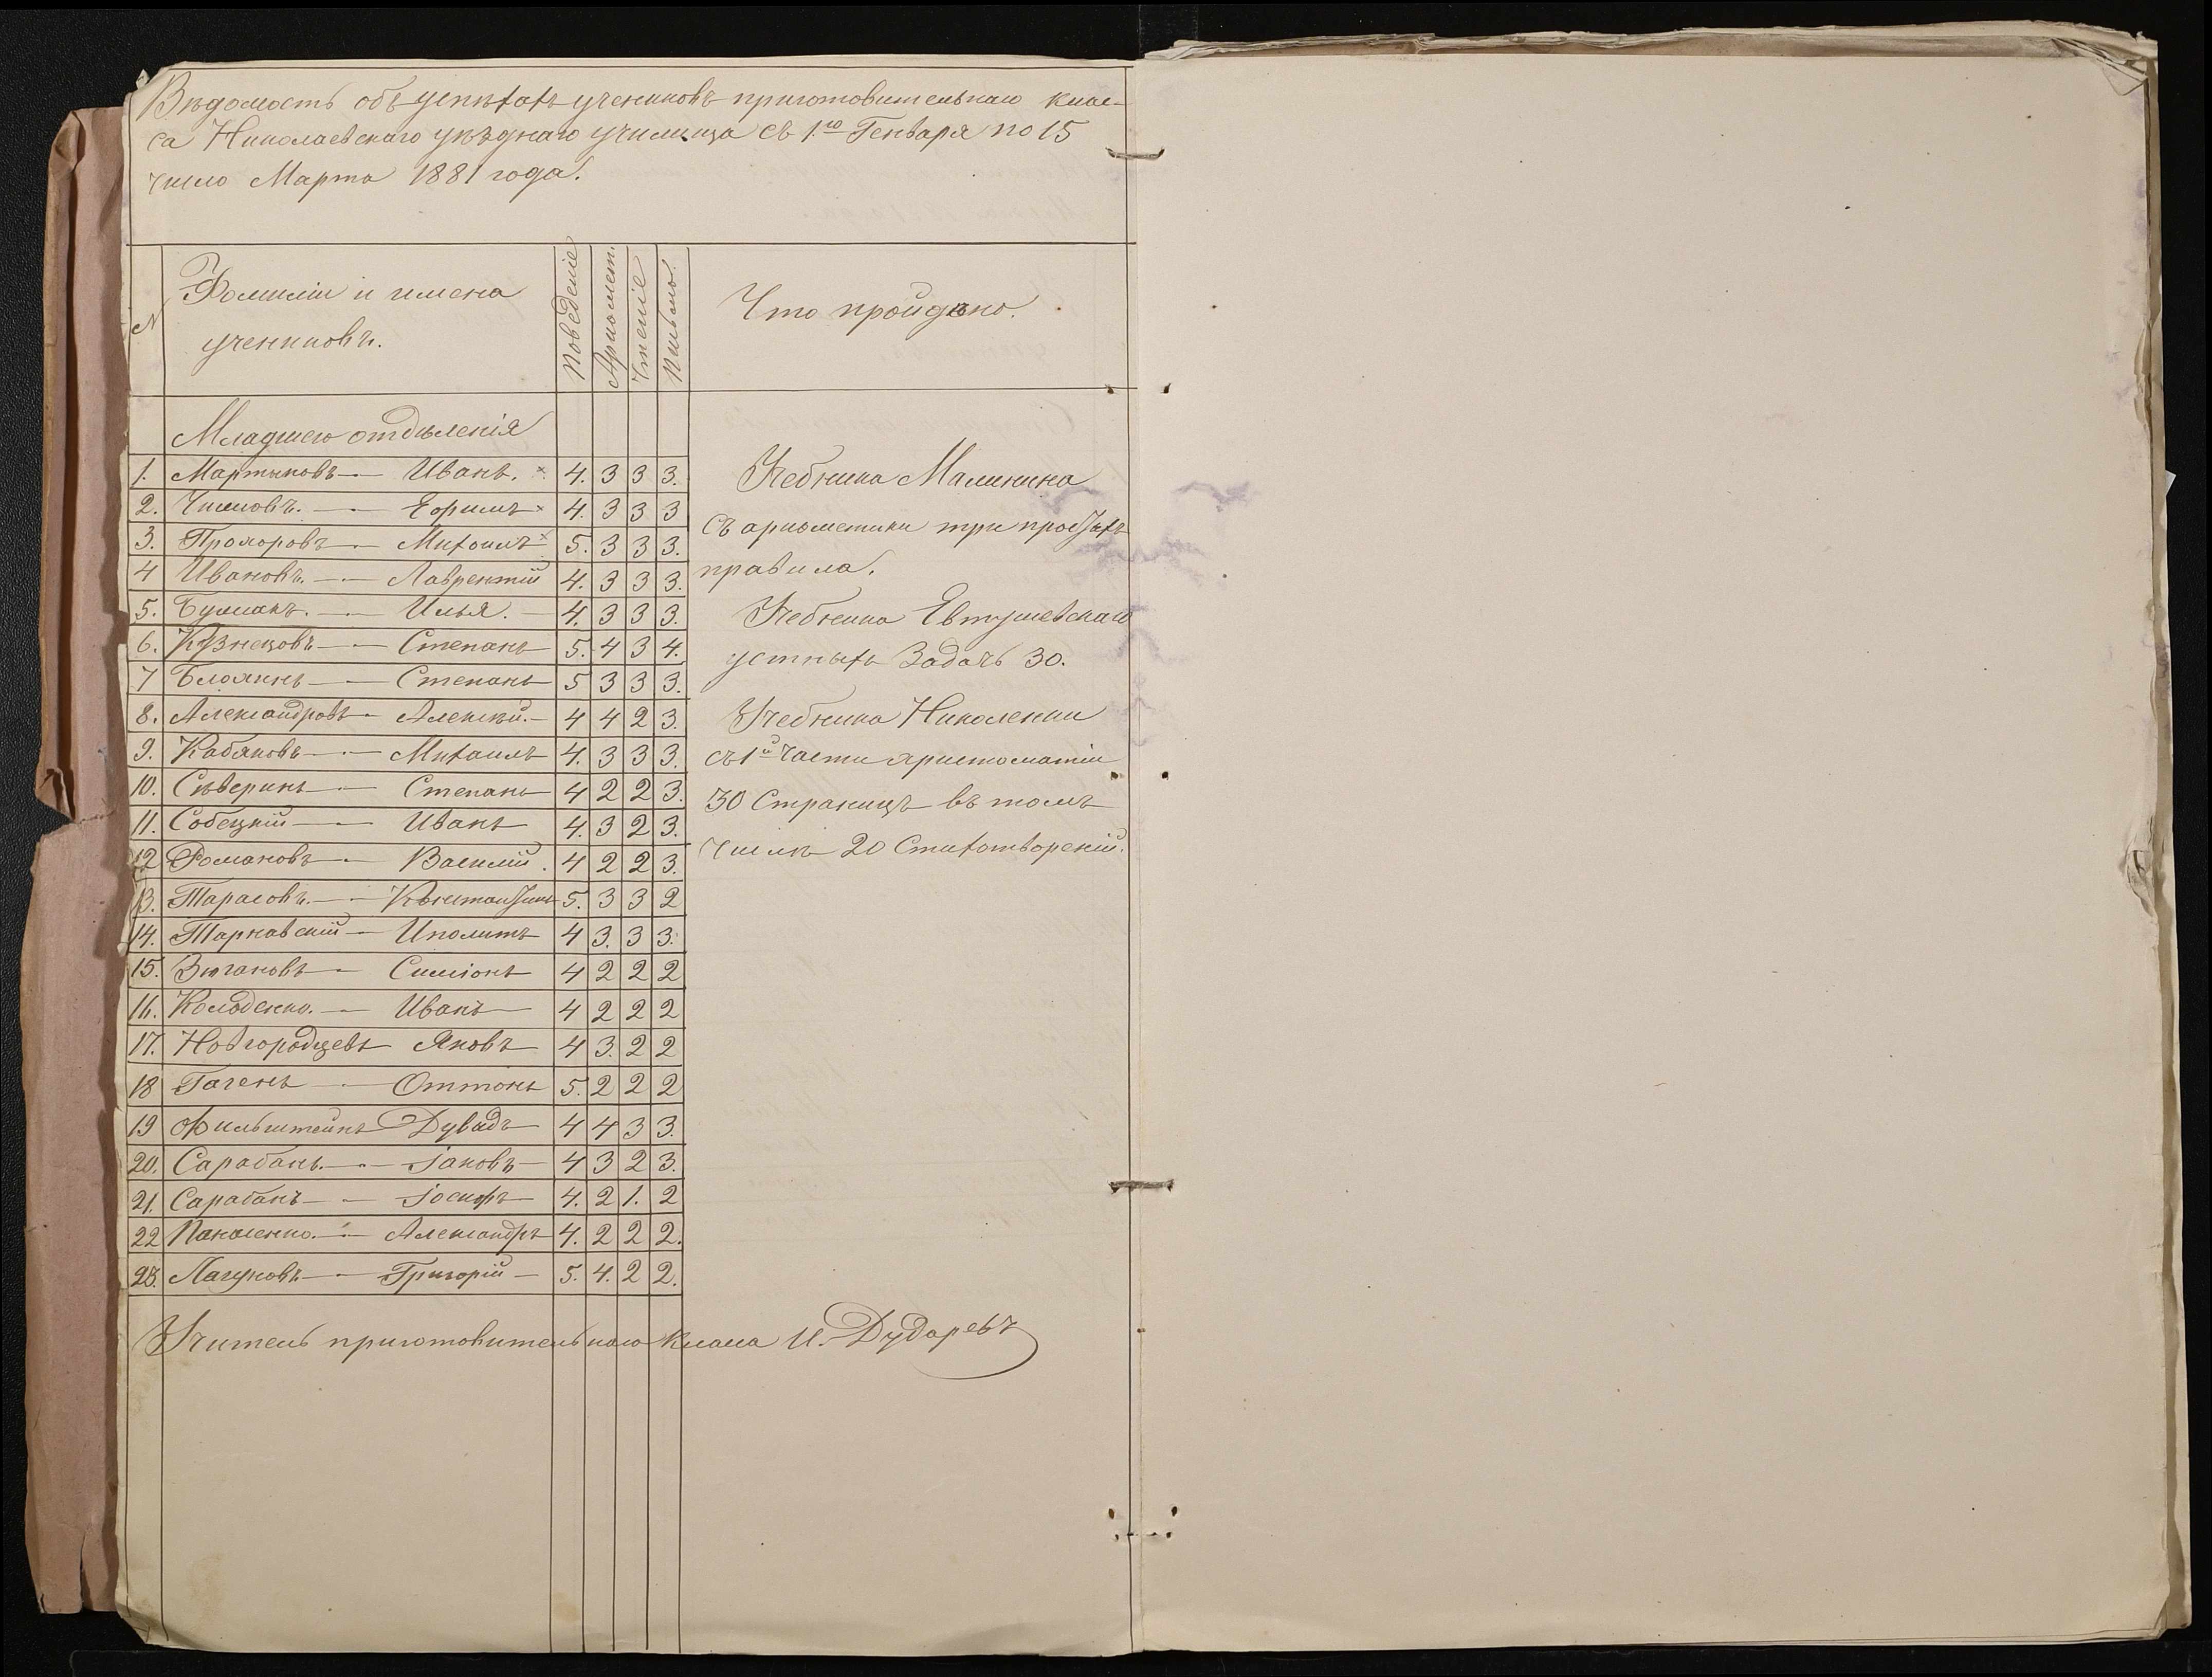 Вѣдомость объ успѣхахъ учениковъ приготовительнаго клас-
са Николаевскаго уѣзднаго училища съ 1го Генваря по 15
число Марта 1881 года.
№ Фамиліи и имена учениковъ. Поведеніе Ариѳмет. Чтеніе Письмо. Что пройдено.
Младшего отдѣленія
1. Мартыновъ — Иванъ. × 4. 3 3 3.
2. Чишовъ. — Ефимъ × 4. 3 3 3
3. Прохоровъ — Михаилъ × 5. 3 3 3.
4 Ивановъ. — Лаврентій 4. 3 3 3.
5. Буманъ. — Илья. — 4. 3 3 3.
6. Кузнецовъ — Степанъ 5. 4 3 4.
7 — Степанъ 5 3 3 3.
8. Александровъ — Алексѣй. — 4 4 2 3.
9. Кабановъ — Михаилъ 4. 3 3 3.
10. Сѣверинъ — Степанъ 4 2 2 3.
11. Собецкій — Иванъ 4. 3 2 3.
12 Романовъ — Василій. 4 2 2 3.
13. Тарасовъ. — Константинъ 5. 3 3 2
14. Тарнавскій — Иполитъ 4 3. 3 3.
15. Зюгановъ — Симіонъ 4 2 2 2
16. Колоденко. — Иванъ 4 2 2 2
17. Новгородцевъ Яковъ 4 3. 2 2
18 Гагенъ — Оттонъ 5. 2 2 2
19 Фильштейнъ Дувидъ 4 4 3 3.
20. Сарабанъ. — Іаковъ 4 3 2 3.
21. Сарабанъ — Іосифъ 4. 2 1. 2
22 Панасенко. — Александръ 4. 2 2 2.
23. Лагуновъ — Григорій — 5. 4. 2 2.
Учебника Малинина
съ ариѳметики три простыхъ
правила.
Учебника Евтушевскаго
устныхъ задачъ 30.
Учебника Николенки
съ 1й части христоматіи
30 страницъ въ томъ
числѣ 20 Стихотвореній.
Учитель приготовительнаго класса И. Дударевъ